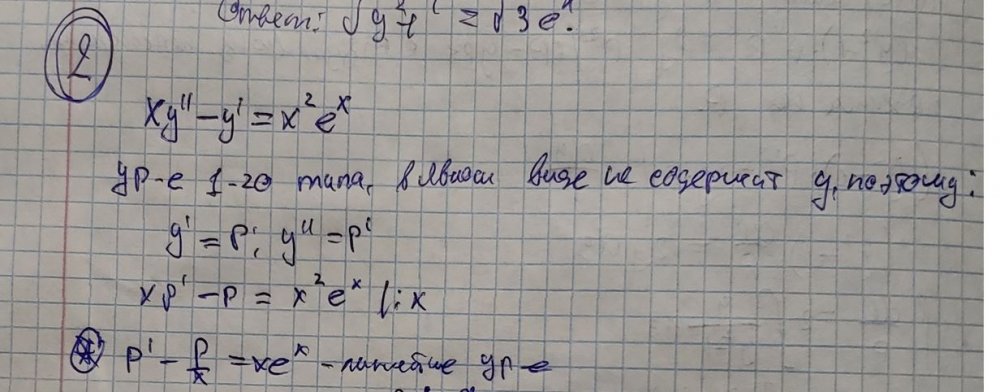 Ответ:
2
xy'' - y' = x²eˣ
ур-е 1-го типа, в явном виде не содержит y, поэтому:
y' = p; y'' = p'
xp' - p = x²eˣ |:x
p' - p/x = xeˣ - линейное ур-е